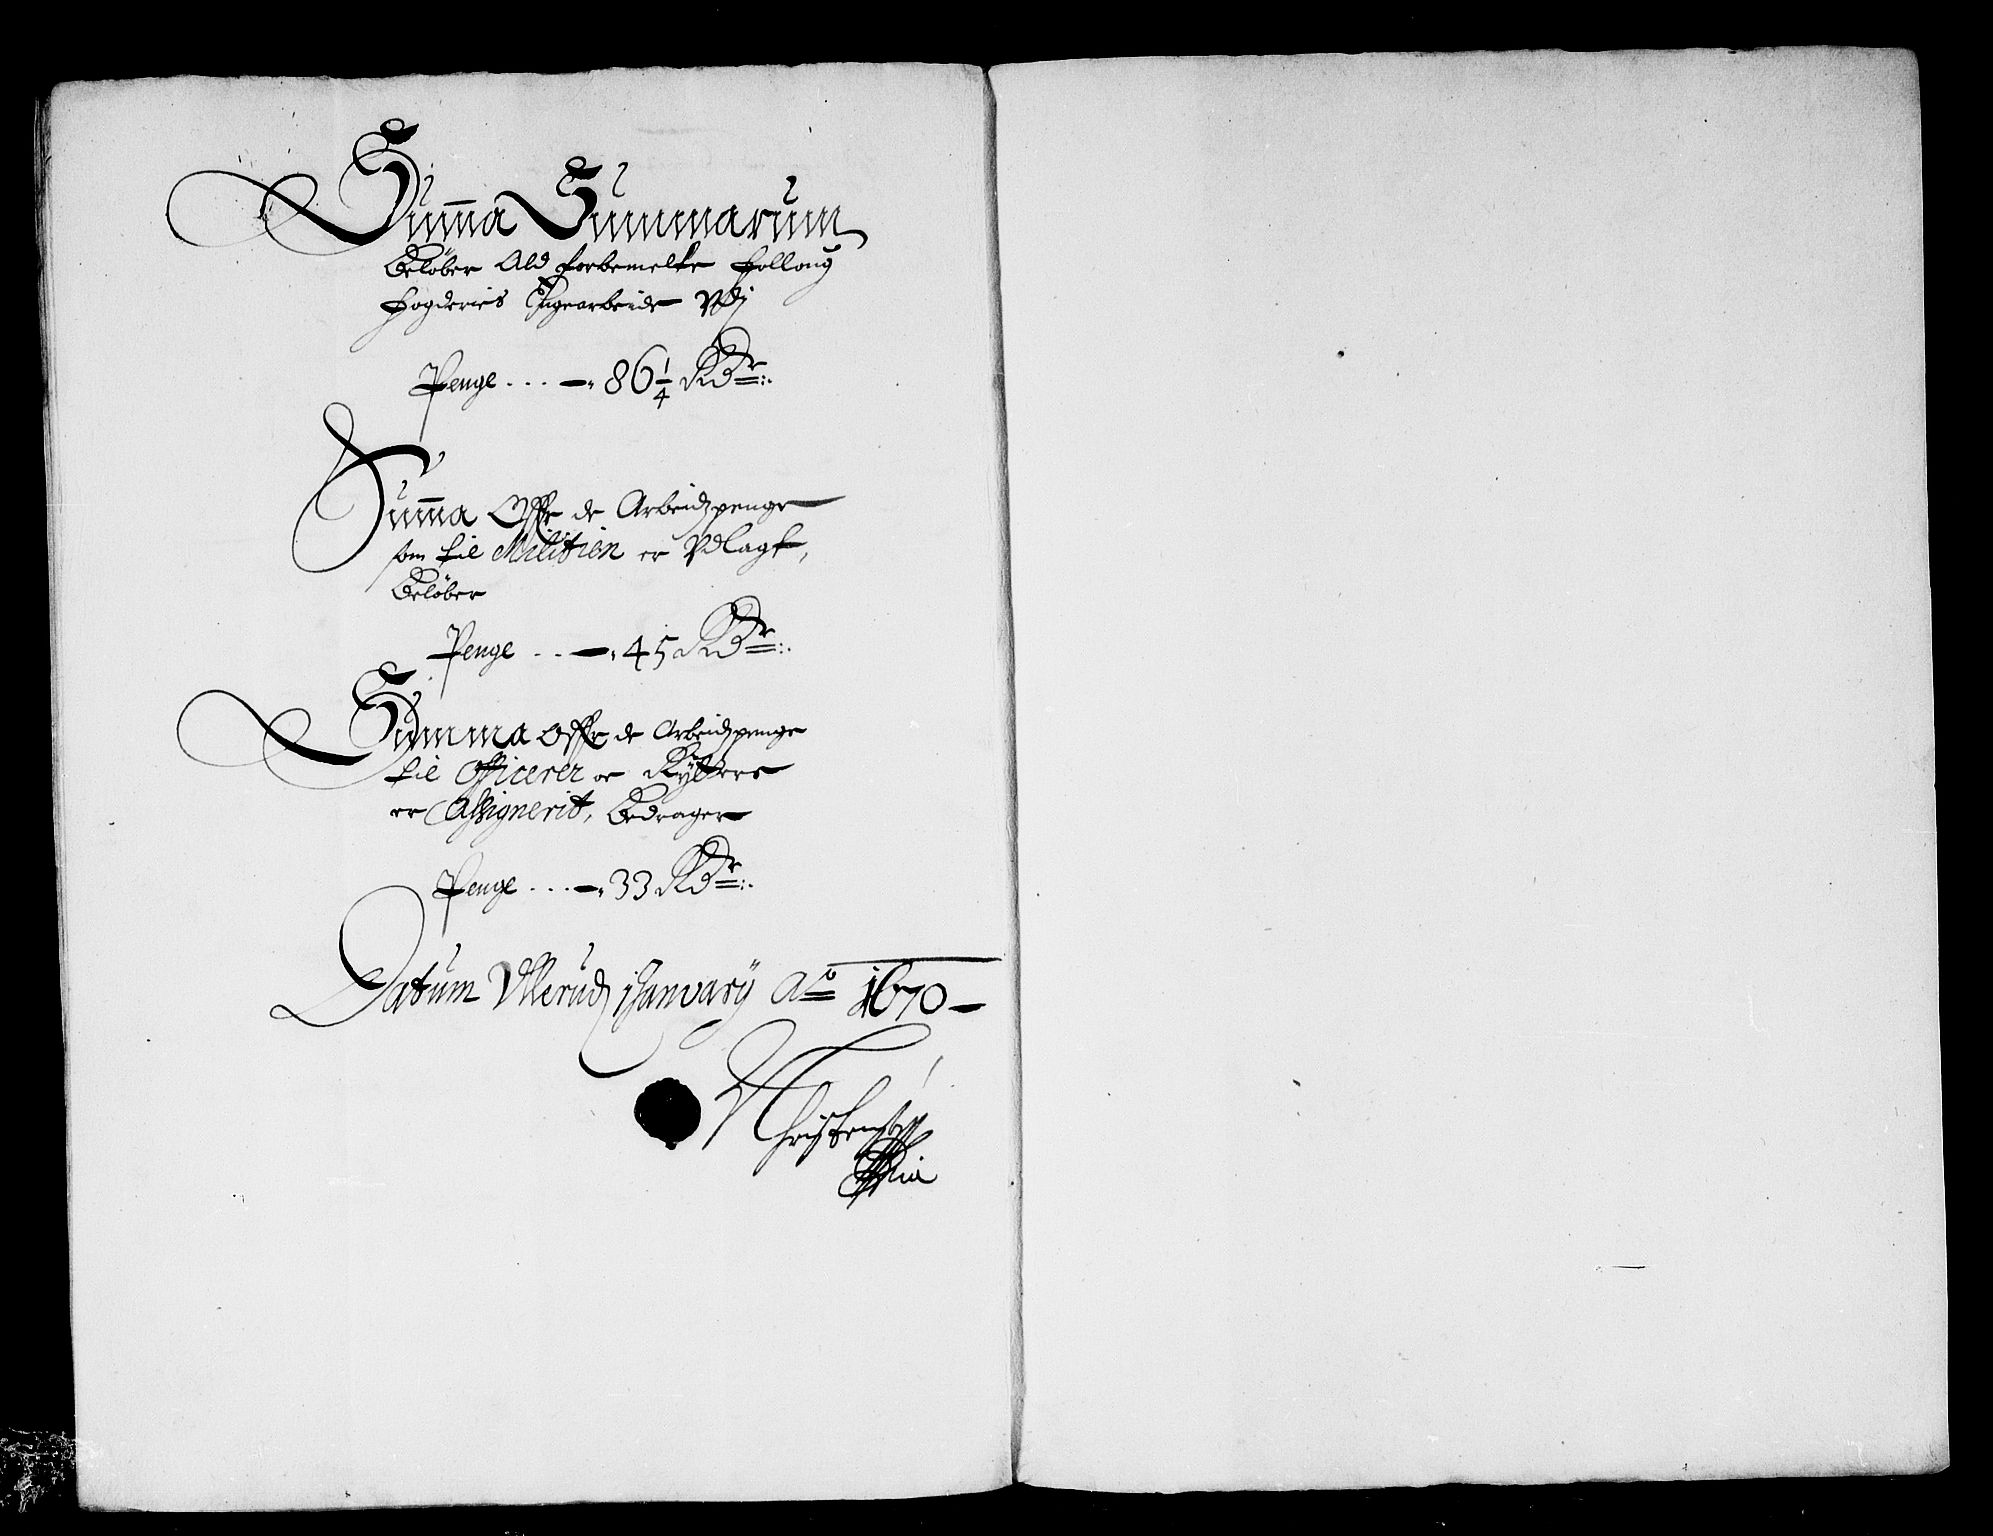 Summa Summarum
Beløber Ald forbemelte Folloug
Fogderies Ugearbeide Vdj
Penge . . . — 86 1/4 Rdr
Summa Offr de Arbeidzpenge
som til Militien er Vdlagt,
Beløber
Penge . . — 45 Rdr
Summa Offr de Arbeidzpenge
til Officerer oc Rÿttere
er Assignerit, Bedrager
Penge . . . — 33 Rdr
Datum 1 Januarÿ Ao 1670 —
Christensen